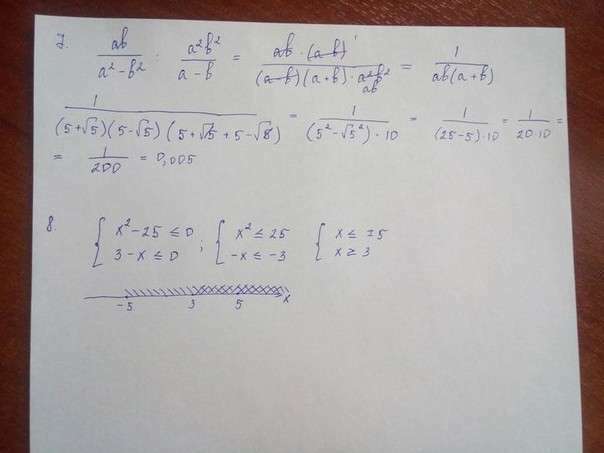 7. ab/(a² - b²) : a²b²/(a - b) = ab · (a - b)/((a - b)(a + b) · a²b² ab) = 1/(ab(a + b))
1/((5+√5)(5-√5)(5+√5+5-√8)) = 1/((5² - √5²) · 10) = 1/((25-5)·10) = 1/(20·10) =
= 1/200 = 0,005
8. { x² - 25 ≤ 0 ; { x² ≤ 25 { x ≤ ±5
{ 3 - x ≤ 0 { -x ≤ -3 { x ≥ 3
-5 3 5 x